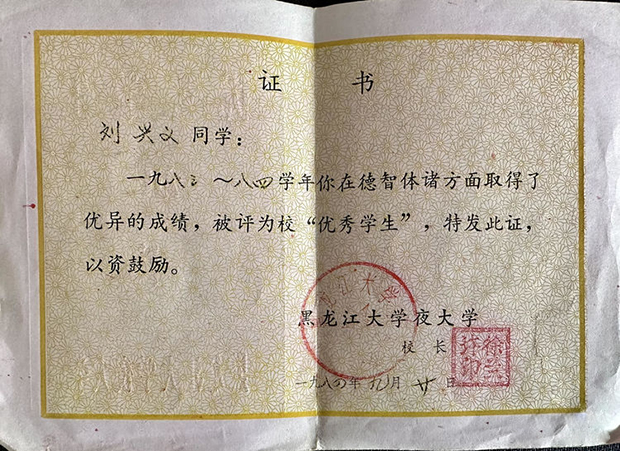 证 书
刘兴义 同学：
一九八三～八四学年你在德智体诸方面取得了
优异的成绩，被评为校“优秀学生”，特发此证，
以资鼓励。
黑龙江大学夜大学
校 长
一九八四年九月廿日